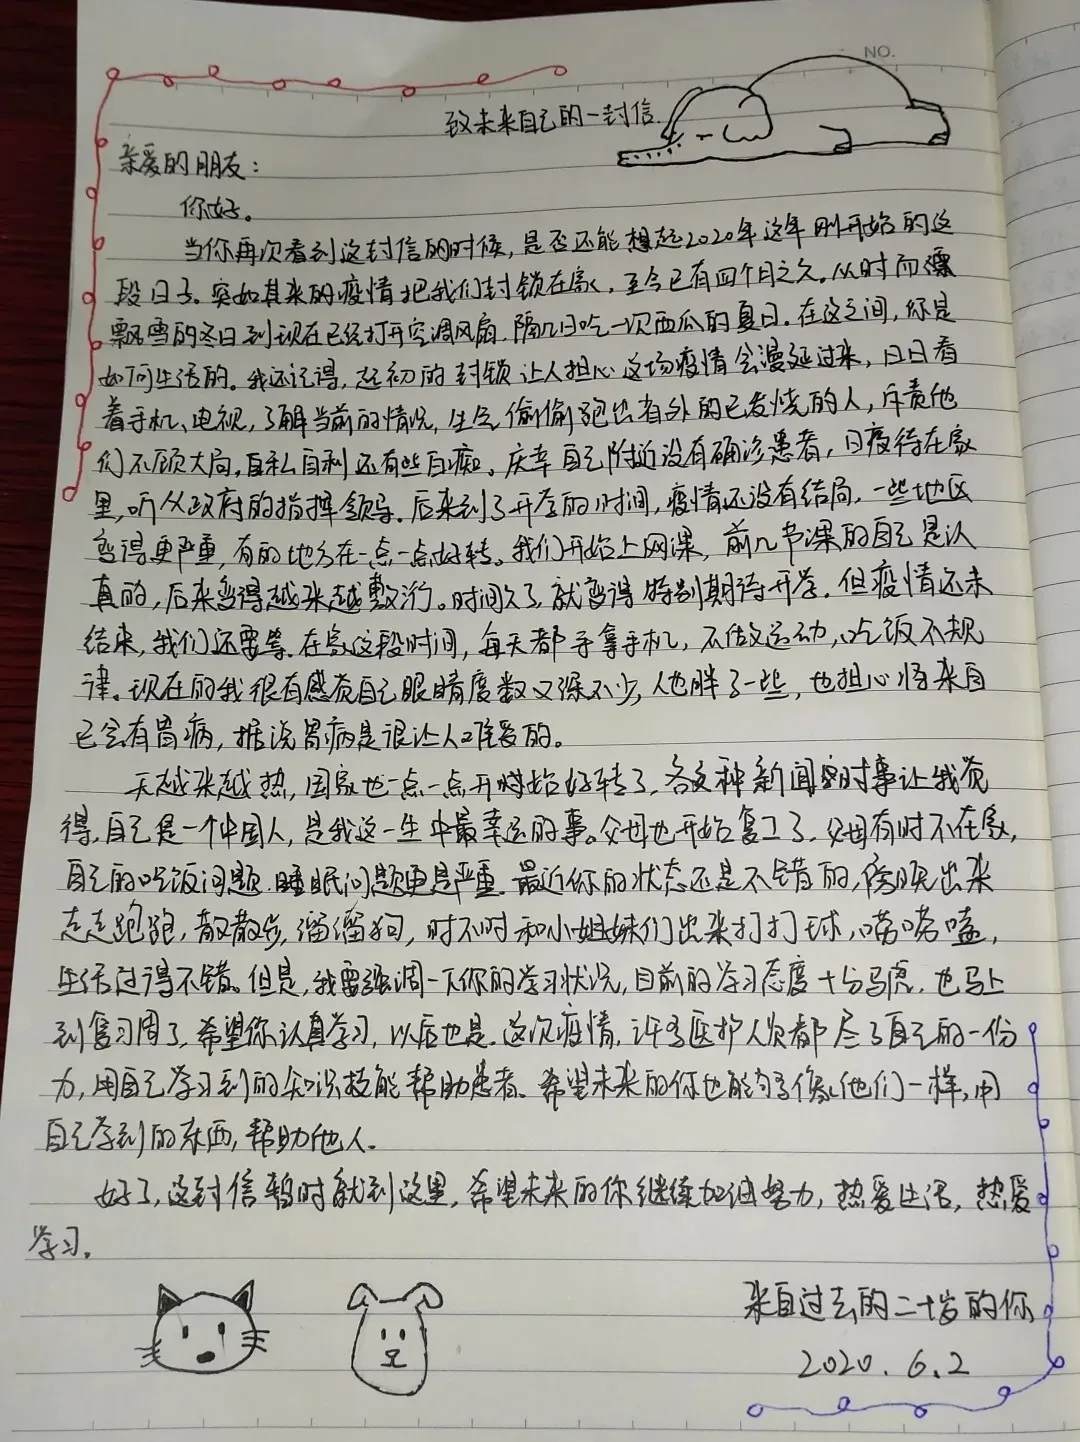 NO.
致未来自己的一封信.
亲爱的朋友：
你好。
当你再次看到这封信的时候，是否还能想起2020年这年刚开始的这
段日子。突如其来的疫情把我们封锁在家，至今已有四个月之久。从时而
飘雪的冬日到现在已经打开空调风扇，隔几日吃一次西瓜的夏日。在这之间，你是
如何生活的。我还记得，起初的封锁让人担心这场疫情会漫延过来，日日看
着手机、电视，了解当前的情况，生气偷偷跑出省外的已发烧的人，斥责他
们不顾大局，自私自利还有些白痴。庆幸自己附近没有确诊患者，日夜待在家
里，听从政府的指挥领导。后来到了开学的时间，疫情还没有结局，一些地区
变得更严重，有的地方在一点一点好转。我们开始上网课，前几节课的自己是认
真的，后来变得越来越敷衍。时间久了，就变得特别期待开学。但疫情还未
结束，我们还要等。在家这段时间，每天都手拿手机，不做运动，吃饭不规
律。现在的我很有感觉自己眼睛度数又深不少，人也胖了一些，也担心将来自
己会有胃病，据说胃病是很让人难受的。
天越来越热，国家也一点一点开始好转了，各种新闻时事让我觉
得，自己是一个中国人，是我这一生中最幸运的事。父母也开始复工了，父母有时不在家，
自己的吃饭问题，睡眠问题更是严重。最近你的状态还是不错的，傍晚出来
走走跑跑，散散步，溜溜狗，时不时和小姐妹们出来打打球，唠唠嗑，
生活过得不错。但是，我要强调一下你的学习状况，目前的学习态度十分马虎，也马上
到复习周了，希望你认真学习，以后也是。这次疫情，许多医护人员都尽了自己的一份
力，用自己学习到的知识技能帮助患者。希望未来的你也能够像他们一样，用
自己学到的东西，帮助他人。
好了，这封信暂时就到这里，希望未来的你继续加油努力，热爱生活，热爱
学习。
来自过去的二十岁的你
2020.6.2